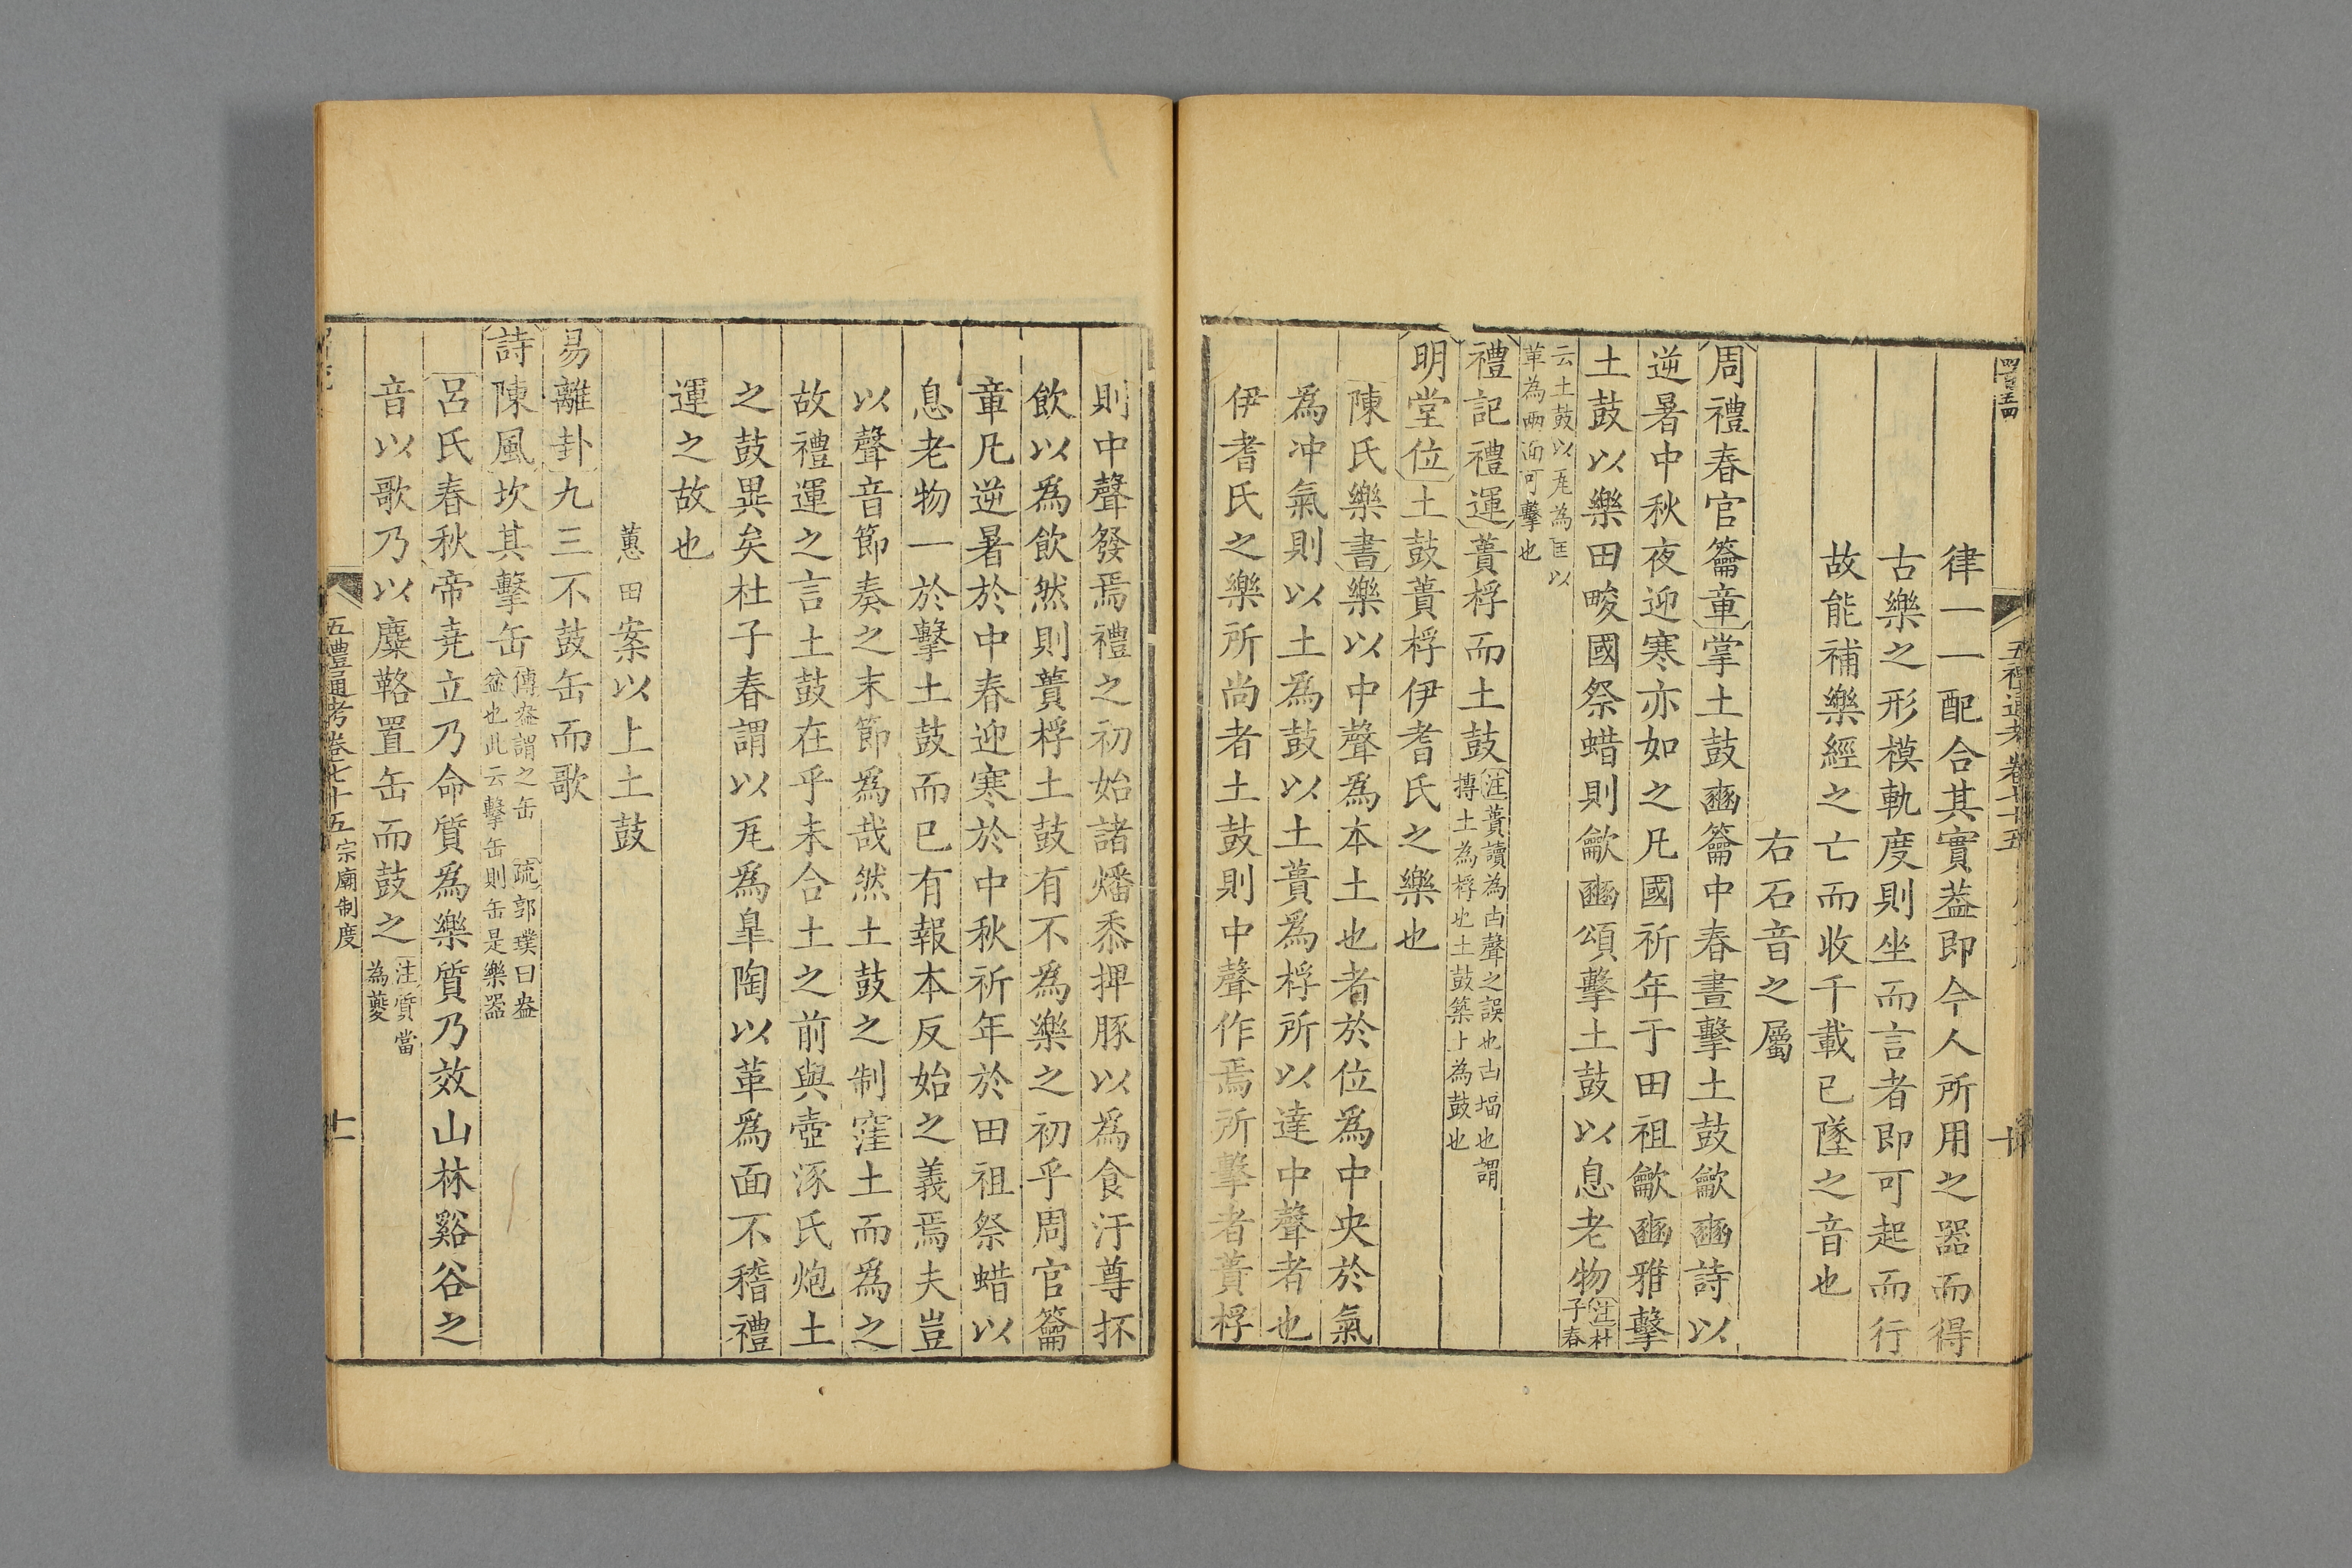 五禮通考卷七十五
律一一配合其實葢即今人所用之器而得
古樂之形模軌度則坐而言者即可起而行
故能補樂經之亡而收千載已墜之音也
右石音之屬
周禮春官籥章掌土鼓豳籥中春晝擊土鼓龡豳詩以
逆暑中秋夜迎寒亦如之凡國祈年于田祖龡豳雅擊
土鼓以樂田畯國祭蜡則龡豳頌擊土鼓以息老物注杜子春
云土鼓以瓦為匡以革為兩面可擊也
禮記禮運蕢桴而土鼓注蕢讀為凷聲之誤也凷堛也謂摶土為桴也土鼓築土為鼓也
明堂位土鼓蕢桴伊耆氏之樂也
陳氏樂書樂以中聲爲本土也者於位爲中央於氣
爲冲氣則以土爲鼓以土蕢爲桴所以達中聲者也
伊耆氏之樂所尚者土鼓則中聲作焉所擊者蕢桴
則中聲發焉禮之初始諸燔黍捭豚以爲食汙尊抔
飲以爲飲然則蕢桴土鼓有不爲樂之初乎周官籥
章凡逆暑於中春迎寒於中秋祈年於田祖祭蜡以
息老物一於擊土鼓而已有報本反始之義焉夫豈
以聲音節奏之末節爲哉然土鼓之制窪土而爲之
故禮運之言土鼓在乎未合土之前與壺涿氏炮土
之鼓異矣杜子春謂以瓦爲皐陶以革爲面不稽禮
運之故也
蕙田案以上土鼓
易離卦九三不鼓缶而歌
詩陳風坎其擊缶傳盎謂之缶 疏郭璞曰盎盆也此云擊缶則缶是樂器
呂氏春秋帝堯立乃命質爲樂質乃效山林谿谷之
音以歌乃以麋䩭置缶而鼓之注質當為夔
五禮通考卷七十五宗廟制度 十一